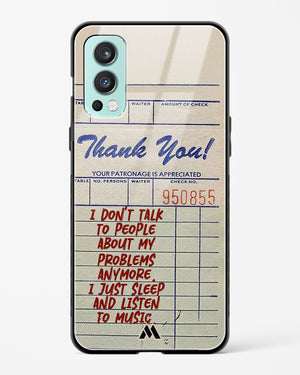 TABLE WAITER AMOUNT OF CHECK
Thank You!
YOUR PATRONAGE IS APPRECIATED
TABLE NO. PERSONS WAITER CHECK NO.
950855
I DON'T TALK
TO PEOPLE
ABOUT MY
PROBLEMS
ANYMORE.
I JUST SLEEP
AND LISTEN
TO MUSIC